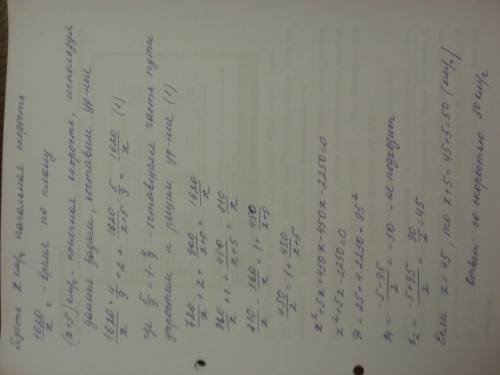 Пусть x км/ч начальная скорость
1620/x = время по плану
(x+5) км/ч - конечная скорость, используя
данные задачи, составим ур-ние
1620/x · 4/9 + 2 + 1620/x+5 · 5/9 = 1620/x (1)
где 5/9 = 1 - 4/9 - оставшаяся часть пути
упростим и решим ур-ние (1)
720/x + 2 + 900/x+5 = 1620/x
360/x + 1 + 450/x+5 = 810/x
810/x - 360/x = 1 + 450/x+5
450/x = 1 + 450/x+5
x² + 5x + 450x - 450x - 2250 = 0
x² + 5x - 2250 = 0
D = 25 + 4·2250 = 95²
x₁ = -5-95/2 = -50 - не подходит
x₂ = -5+95/2 = 90/2 = 45
Если x = 45, то x+5 = 45+5 = 50 (км/ч)
Ответ: со скоростью 50 км/ч